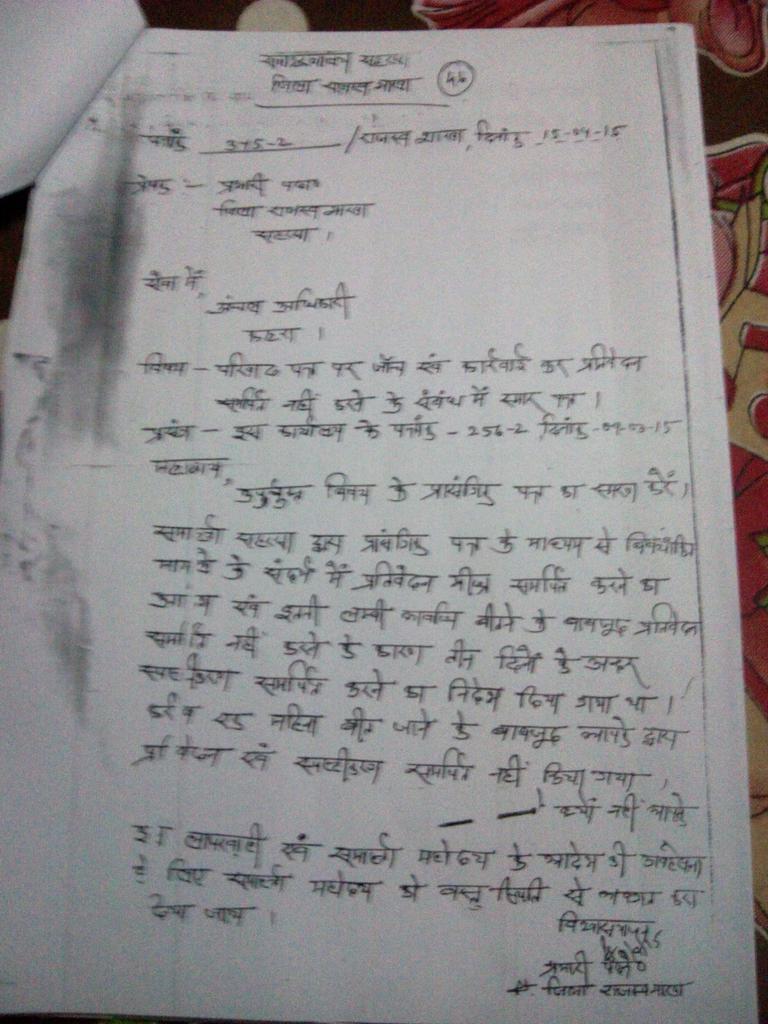 समाहरणालय सहरसा
जिला राजस्व शाखा (46)
पत्रांक 375-2 /राजस्व शाखा, दिनांक 15-04-15
प्रेषक :- प्रभारी पदा०
जिला राजस्व शाखा
सहरसा ।
सेवा में,
अंचल अधिकारी
कहरा ।
विषय - परिवाद पत्र पर जाँच एवं कार्रवाई कर प्रतिवेदन
समर्पित नहीं करने के संबंध में स्मार पत्र ।
प्रसंग - इस कार्यालय के पत्रांक - 256-2 दिनांक -04-03-15
महाशय,
उपर्युक्त विषय के प्रासंगिक पत्र का स्मरण करें ।
समाहर्ता सहरसा द्वारा प्रासंगिक पत्र के माध्यम से विषयांकित
मामले के संदर्भ में प्रतिवेदन शीघ्र समर्पित करने का
एवं इतनी लम्बी अवधि बीतने के बावजूद प्रतिवेदन
समर्पित नहीं करने के कारण तीन दिनों के अन्दर
स्पष्टीकरण समर्पित करने का निदेश दिया गया था ।
करीब एक महिना बीत जाने के बावजूद आपके द्वारा
प्रतिवेदन एवं स्पष्टीकरण समर्पित नहीं किया गया ।
क्यों नहीं आपके
इस लापरवाही एवं समाहर्ता महोदय के आदेश की अवहेलना
के लिए समाहर्ता महोदय को वस्तु स्थिति से अवगत करा
दिया जाय ।
विश्वासभाजन
प्रभारी पदा०
जिला राजस्व शाखा